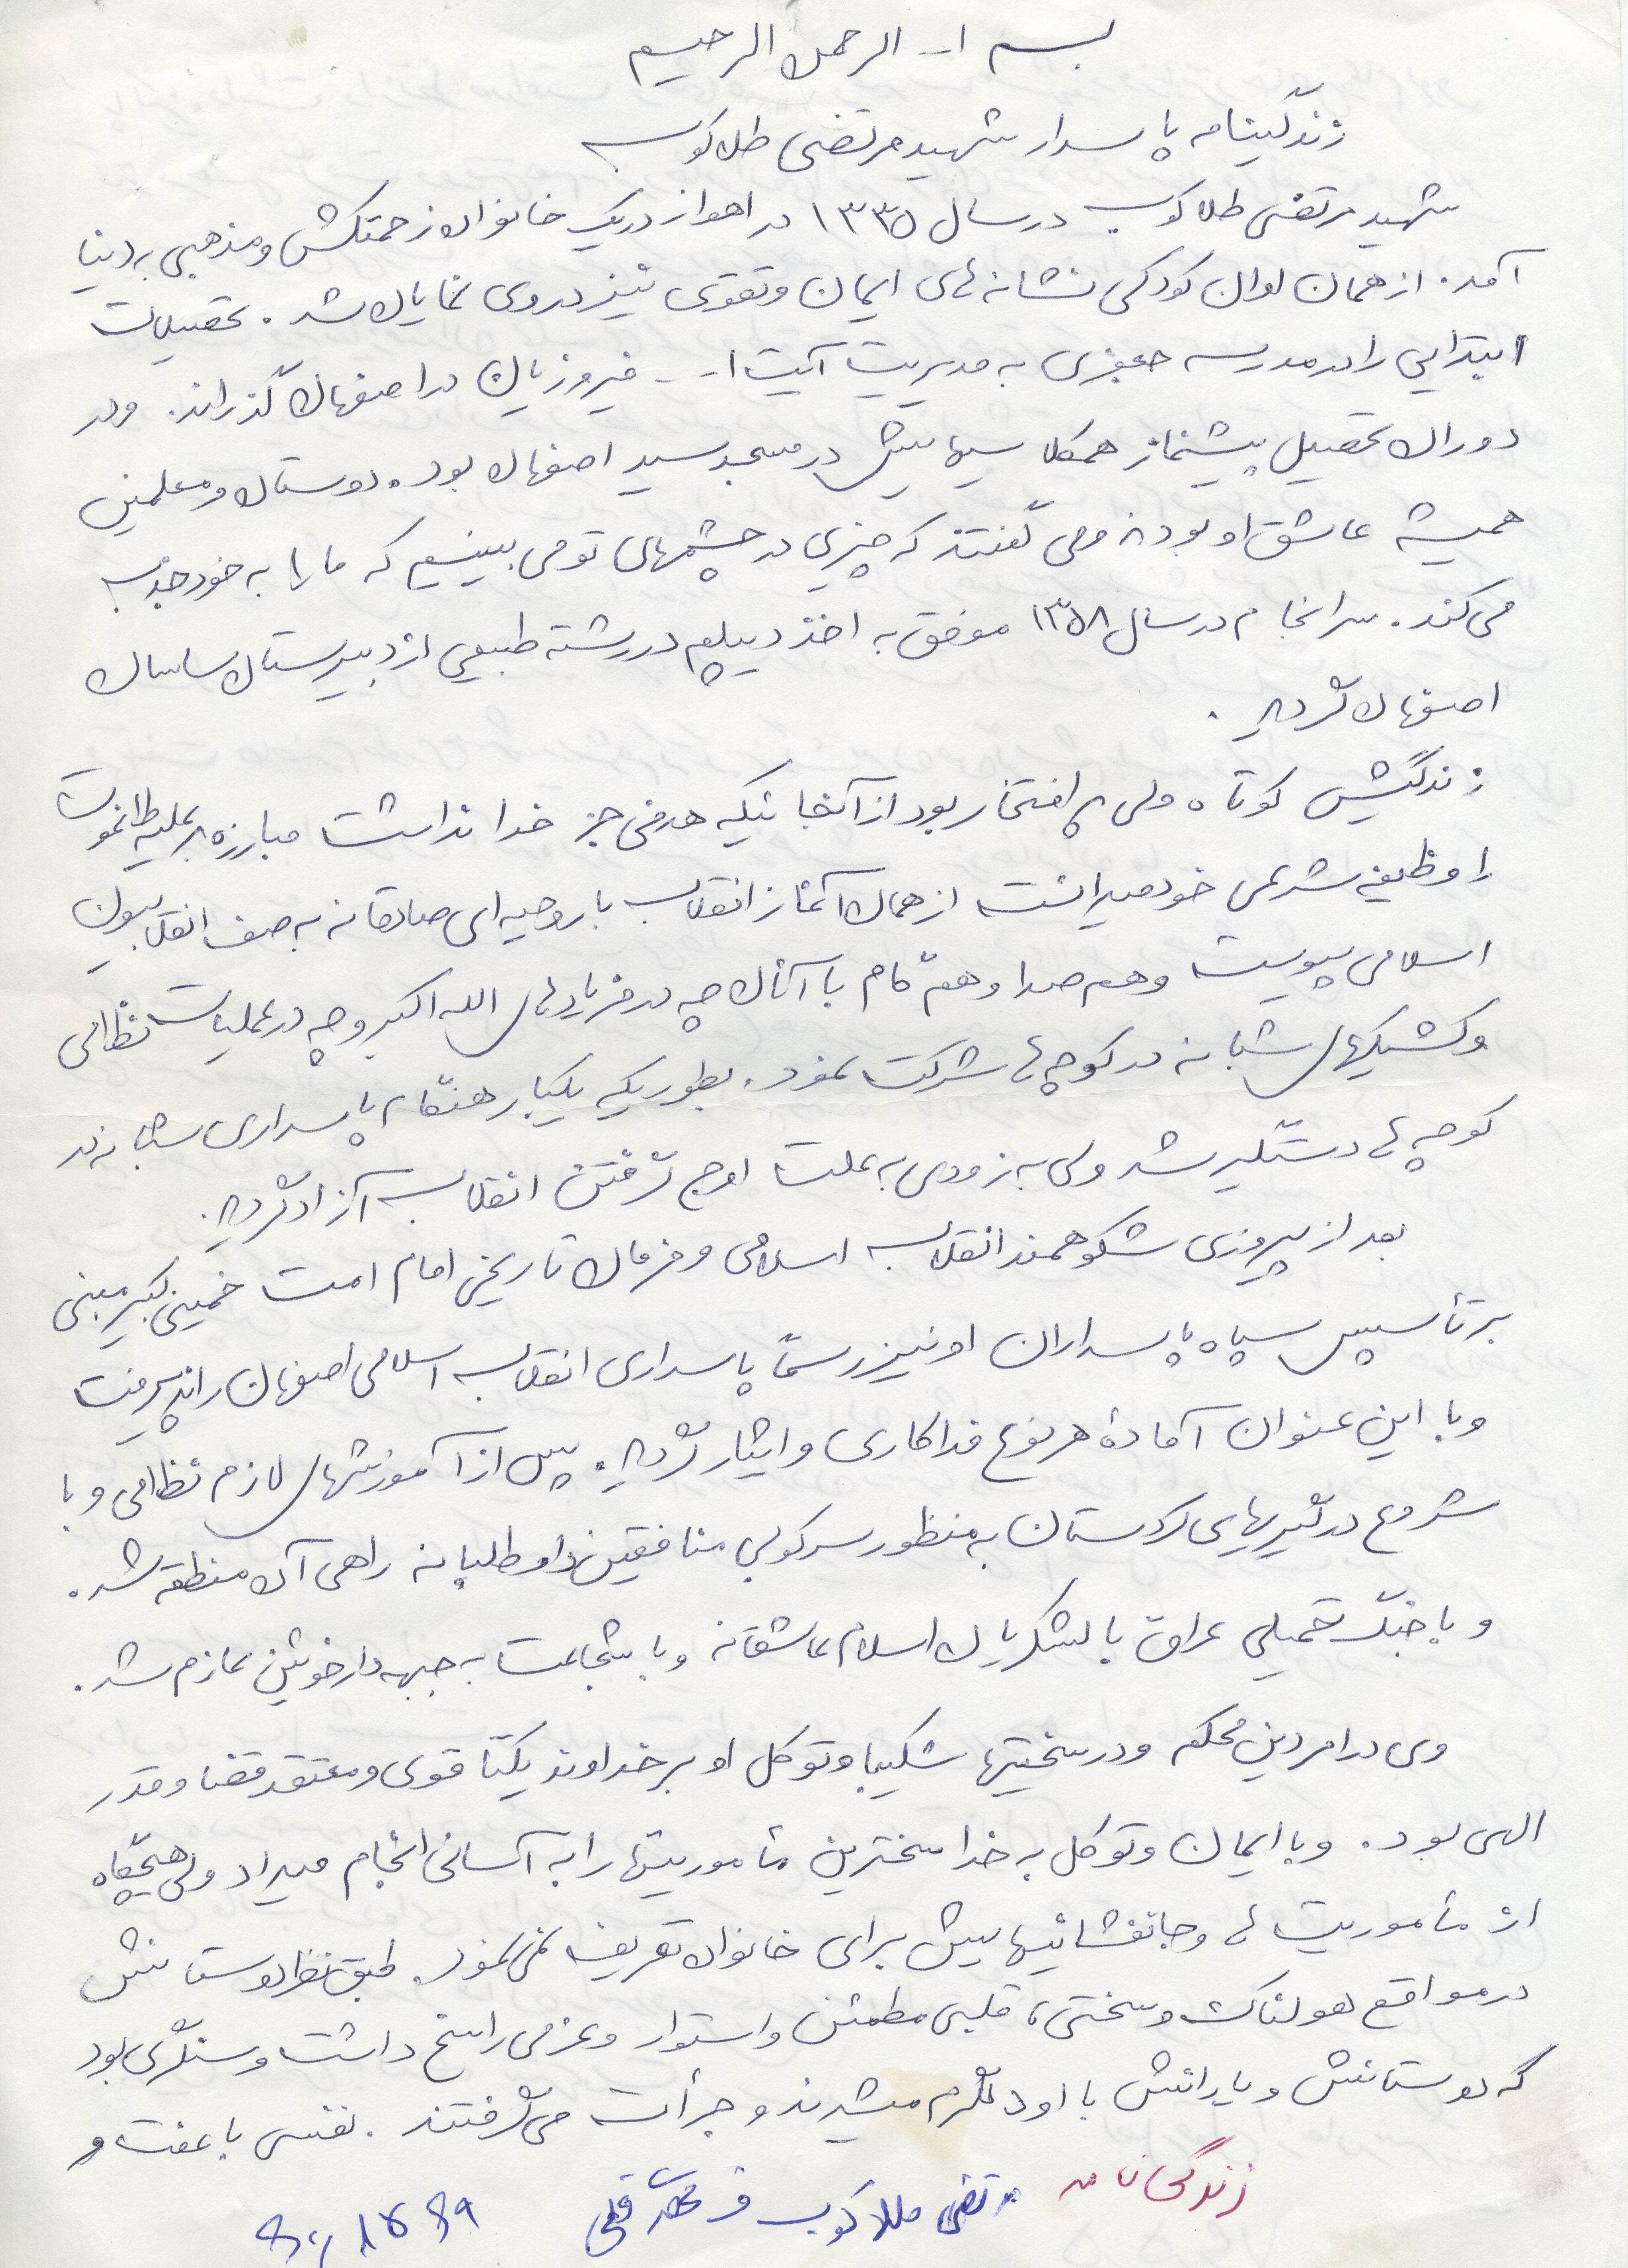 بسم ا... الرحمن الرحیم
زندگینامه پاسدار شهید مرتضی طلاکوب
شهید مرتضی طلاکوب در سال ۱۳۳۵ در اهواز در یک خانواده زحمتکش و مذهبی به دنیا
آمد. از همان اوان کودکی نشانه های ایمان و تقوی نیز در وی نمایان شد. تحصیلات
ابتدایی را در مدرسه جعفری به مدیریت آیت ا... فیروزیان در اصفهان گذراند. و در
دوران تحصیل پیشنماز همکلاسیهایش در مسجد سید اصفهان بود. دوستان و معلمین
همیشه عاشق او بودند و می گفتند که چیزی در چشمهای تو می بینیم که ما را به خود جذب
می کند. سرانجام در سال ۱۳۵۸ موفق به اخذ دیپلم در رشته طبیعی از دبیرستان ساسان
اصفهان گردید.
زندگیش کوتاه ولی پر افتخار بود از آنجائیکه هدفی جز خدا نداشت مبارزه بر علیه طاغوت
را وظیفه شرعی خود میدانست از همان آغاز انقلاب با روحیه ای صادقانه به صف انقلابیون
اسلامی پیوست و هم صدا و هم گام با آنان چه در فریادهای الله اکبر و چه در عملیات نظامی
و کشیکهای شبانه در کوچه ها شرکت نمود. بطوریکه یکبار هنگام پاسداری شبانه در
کوچه ها دستگیر شد ولی به زودی به علت اوج گرفتن انقلاب آزاد گردید.
بعد از پیروزی شکوهمند انقلاب اسلامی و فرمان تاریخی امام امت خمینی کبیر مبنی
بر تأسیس سپاه پاسداران او نیز رسماً پاسداری انقلاب اسلامی اصفهان را پذیرفت
و با این عنوان آمادهٔ هر نوع فداکاری و ایثار گردید. پس از آموزشهای لازم نظامی و با
شروع درگیریهای کردستان به منظور سرکوبی منافقین داوطلبانه راهی آن منطقه شد.
و با جنگ تحمیلی عراق با لشکریان اسلام عاشقانه و با شجاعت به جبهه دارخوئین عازم شد.
وی در امر دین محکم و در سختیها شکیبا و توکل او بر خداوند یکتا قوی و معتقد قضا و قدر
الهی بود. و با ایمان و توکل به خدا سخترین مأموریتها را به آسانی انجام میداد ولی هیچگاه
از مأموریت ها و جانفشانیهایش برای خانواده تعریف نمی نمود. طبق نظر دوستانش
در مواقع هولناک و سختی، قلبی مطمئن و استوار و عزمی راسخ داشت و سنگری بود
که دوستانش و یارانش با او دلگرم میشدند و جرأت می گرفتند. نفسی با عفت و
زندگی نامه مرتضی طلاکوب ف محمدتقی